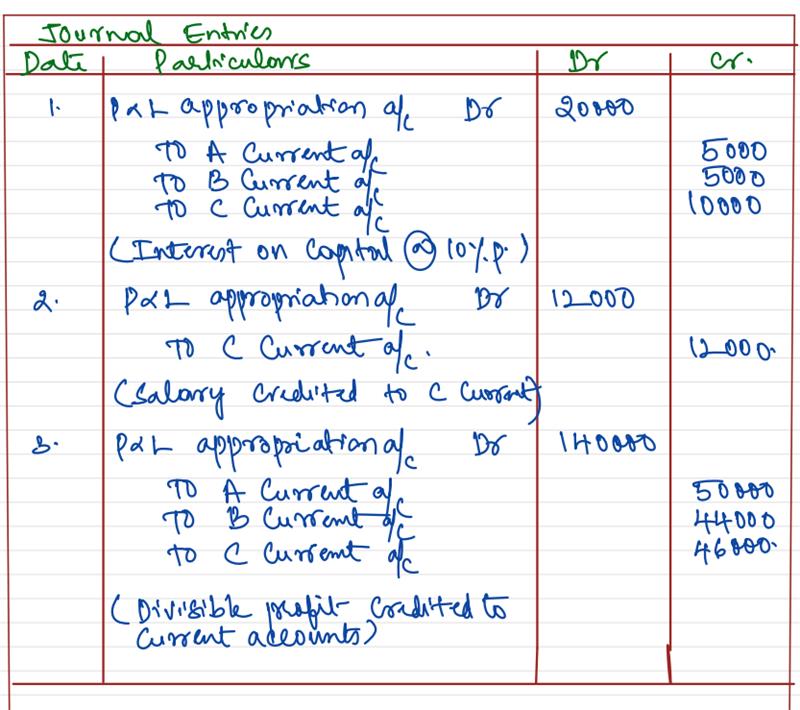 Journal Entries
Date Particulars Dr Cr.
1. P&L appropriation a/c Dr 20000
TO A Current a/c 5000
TO B Current a/c 5000
TO C Current a/c 10000
(Interest on Capital @ 10%.p.)
2. P&L appropriation a/c Dr 12000
TO C Current a/c. 12000.
(Salary Credited to C Current)
3. P&L appropriation a/c Dr 140000
TO A Current a/c 50000
TO B Current a/c 44000
TO C Current a/c 46000.
(Divisible profit Credited to
Current accounts)